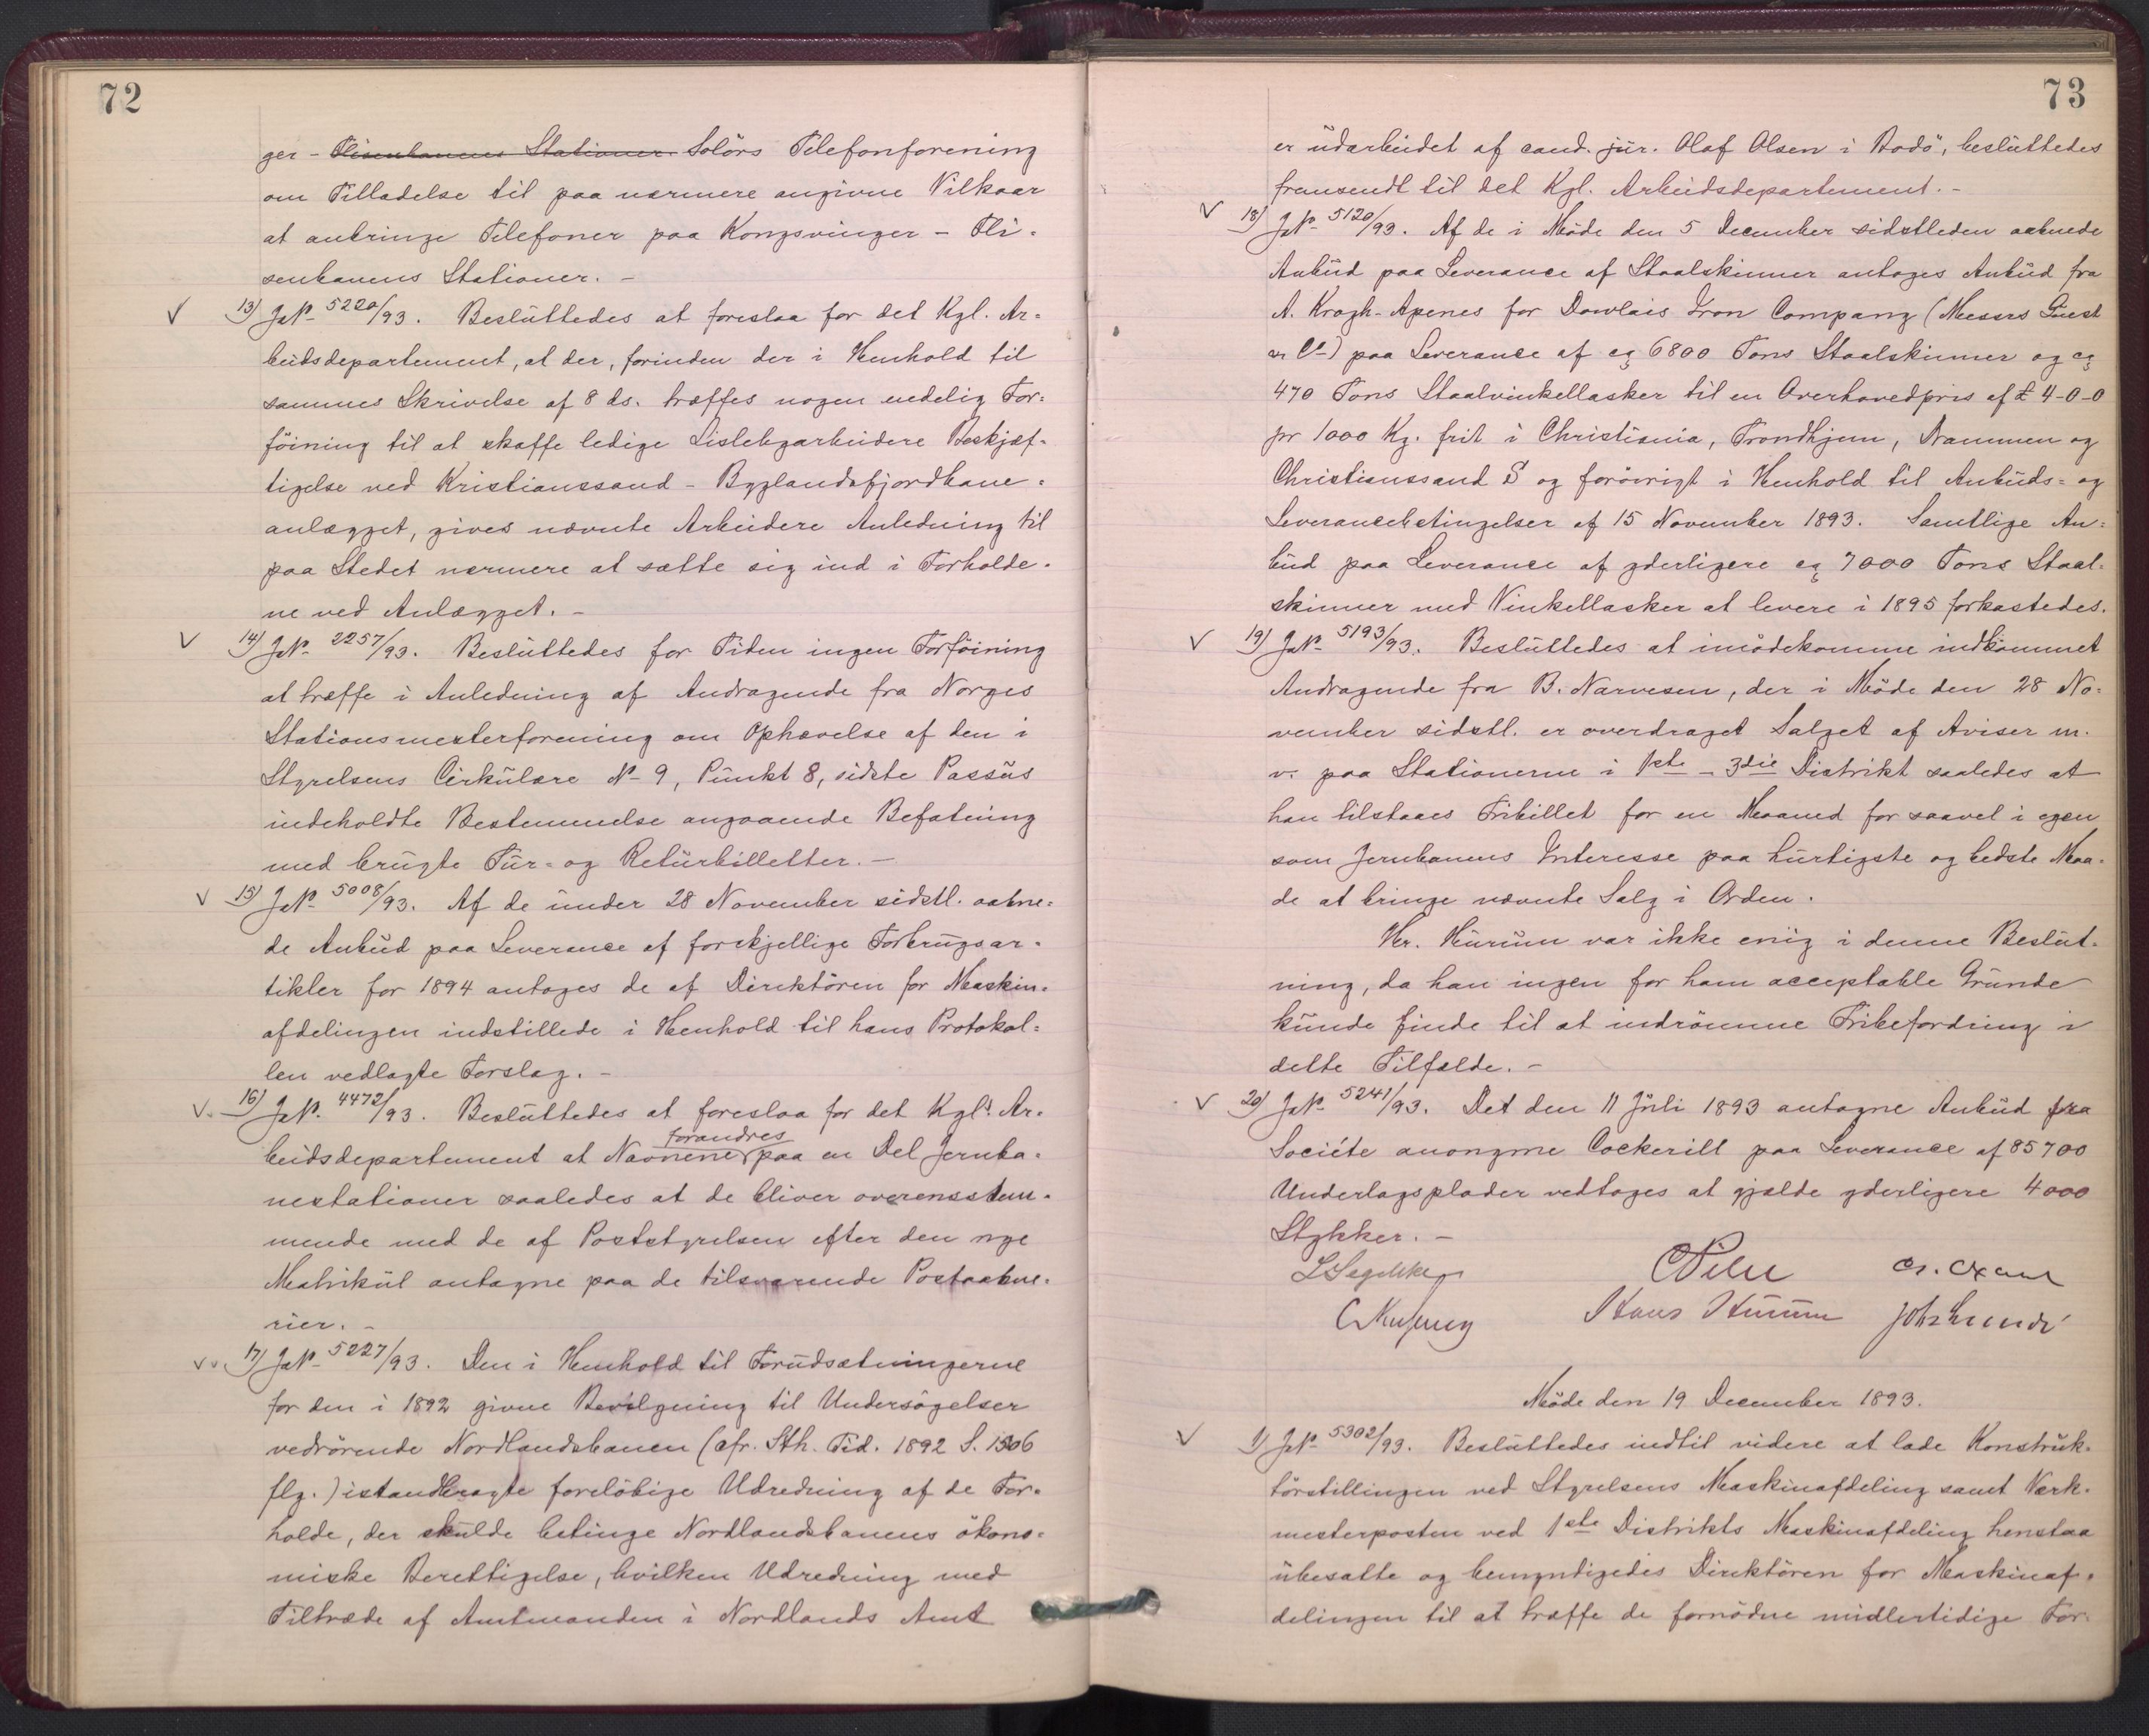 72
ger - Flisenbanens Stationer Solörs Telefonforening
om Tilladelse til paa nærmere angivne Vilkaar
at anbringe Telefoner paa Kongsvinger - Fli-
senbanens Stationer. -
13) JNo 5220/93. Besluttedes at foreslaa for det Kgl. Ar-
beidsdepartement, at der, forinden der i Henhold til
sammes Skrivelse af 8 ds. træffes nogen endelig For-
föining til at skaffe ledige Lislebyarbeidere Beskjæf-
tigelse ved Kristianssand - Byglandsfjordbane-
anlægget, gives nævnte Arbeidere Anledning til
paa Stedet nærmere at sætte sig ind i Forholde-
ne ved Anlægget. -
14) JNo 2257/93. Besluttedes for Tiden ingen Forföining
at træffe i Anledning af Andragende fra Norges
Stationsmesterforening om Ophævelse af den i
Styrelsens Cirkulære No 9, Punkt 8, sidste Passus
indeholdte Bestemmelse angaaende Befatning
med brugte Tur- og Returbilletter. -
15) JNo 5008/93. Af de under 28 November sidstl. aabne-
de Anbud paa Leverance af forskjellige Forbrugsar-
tikler for 1894 antoges de af Direktören for Maskin-
afdelingen indstillede i Henhold til hans Protokol-
len vedlagte Forslag. -
16) JNo 4472/93. Besluttedes at foreslaa for det Kgl. Ar-
forandres
beidsdepartement at Navnene paa en Del Jernba-
nestationer saaledes at de bliver overensstem-
mende med de af Poststyrelsen efter den nye
Matrikul antagne paa de tilsvarende Postaabne-
rier. -
17) JNo 5227/93. Den i Henhold til Forudsætningerne
for den i 1892 givne Bevilgning til Undersögelser
vedrörende Nordlandsbanen (cfr. Sth. Tid. 1892 S. 1306
flg.) istandbragte forelöbige Udredning af de For-
holde, der skulde betinge Nordlandsbanens ökono-
miske Berettigelse, hvilken Udredning med
Tiltræde af Amtmanden i Nordlands Amt
73
er udarbeidet af cand. jur. Olaf Olsen i Bodö, besluttedes
fremsendt til det Kgl. Arbeidsdepartement. -
18) JNo 5120/93. Af de i Möde den 5 December sidstleden aabnede
Anbud paa Leverance af Staalskinner antoges Anbud fra
A. Krogh-Apenes for Dowlais Iron Company (Messrs Guest
& Co) paa Leverance af ca 6800 Tons Staalskinner og ca
470 Tons Staalvinkellasker til en Overhovedpris af £ 4-0-0
pr 1000 Kg. frit i Christiania, Trondhjem, Drammen og
Christianssand S og forövrigt i Henhold til Anbuds- og
Leverancebetingelser af 15 November 1893. Samtlige An-
bud paa Leverance af yderligere ca 7000 Tons Staal-
skinner med Vinkellasker at levere i 1895 forkastedes.
19) JNo 5193/93. Besluttedes at imödekomme indkommet
Andragende fra B. Narvesen, der i Möde den 28 No-
vember sidstl. er overdraget Salget af Aviser m.
v. paa Stationerne i 1ste - 3die Distrikt saaledes at
han tilstaaes Fribillet for en Maaned for saavel i egen
som Jernbanens Interesse paa hurtigste og bedste Maa-
de at bringe nævnte Salg i Orden.
Hr. Hurum var ikke enig i denne Beslut-
ning, da han ingen for ham acceptable Grunde
kunde finde til at indrömme Fribefordring i
dette Tilfælde. -
20) JNo 5241/93. Det den 11 Juli 1893 antagne Anbud fra
Société anonyme Cockerill paa Leverance af 85700
Underlagsplader vedtoges at gjælde yderligere 4000
Stykker. -
C Pihl
Hans Hurum
Möde den 19 December 1893.
1) JNo 5302/93. Besluttedes indtil videre at lade Konstruk-
törstillingen ved Styrelsens Maskinafdeling samt Værk-
mesterposten ved 1ste Distrikts Maskinafdeling henstaa
ubesatte og bemyndigedes Direktören for Maskinaf-
delingen til at træffe de fornödne midlertidige For-